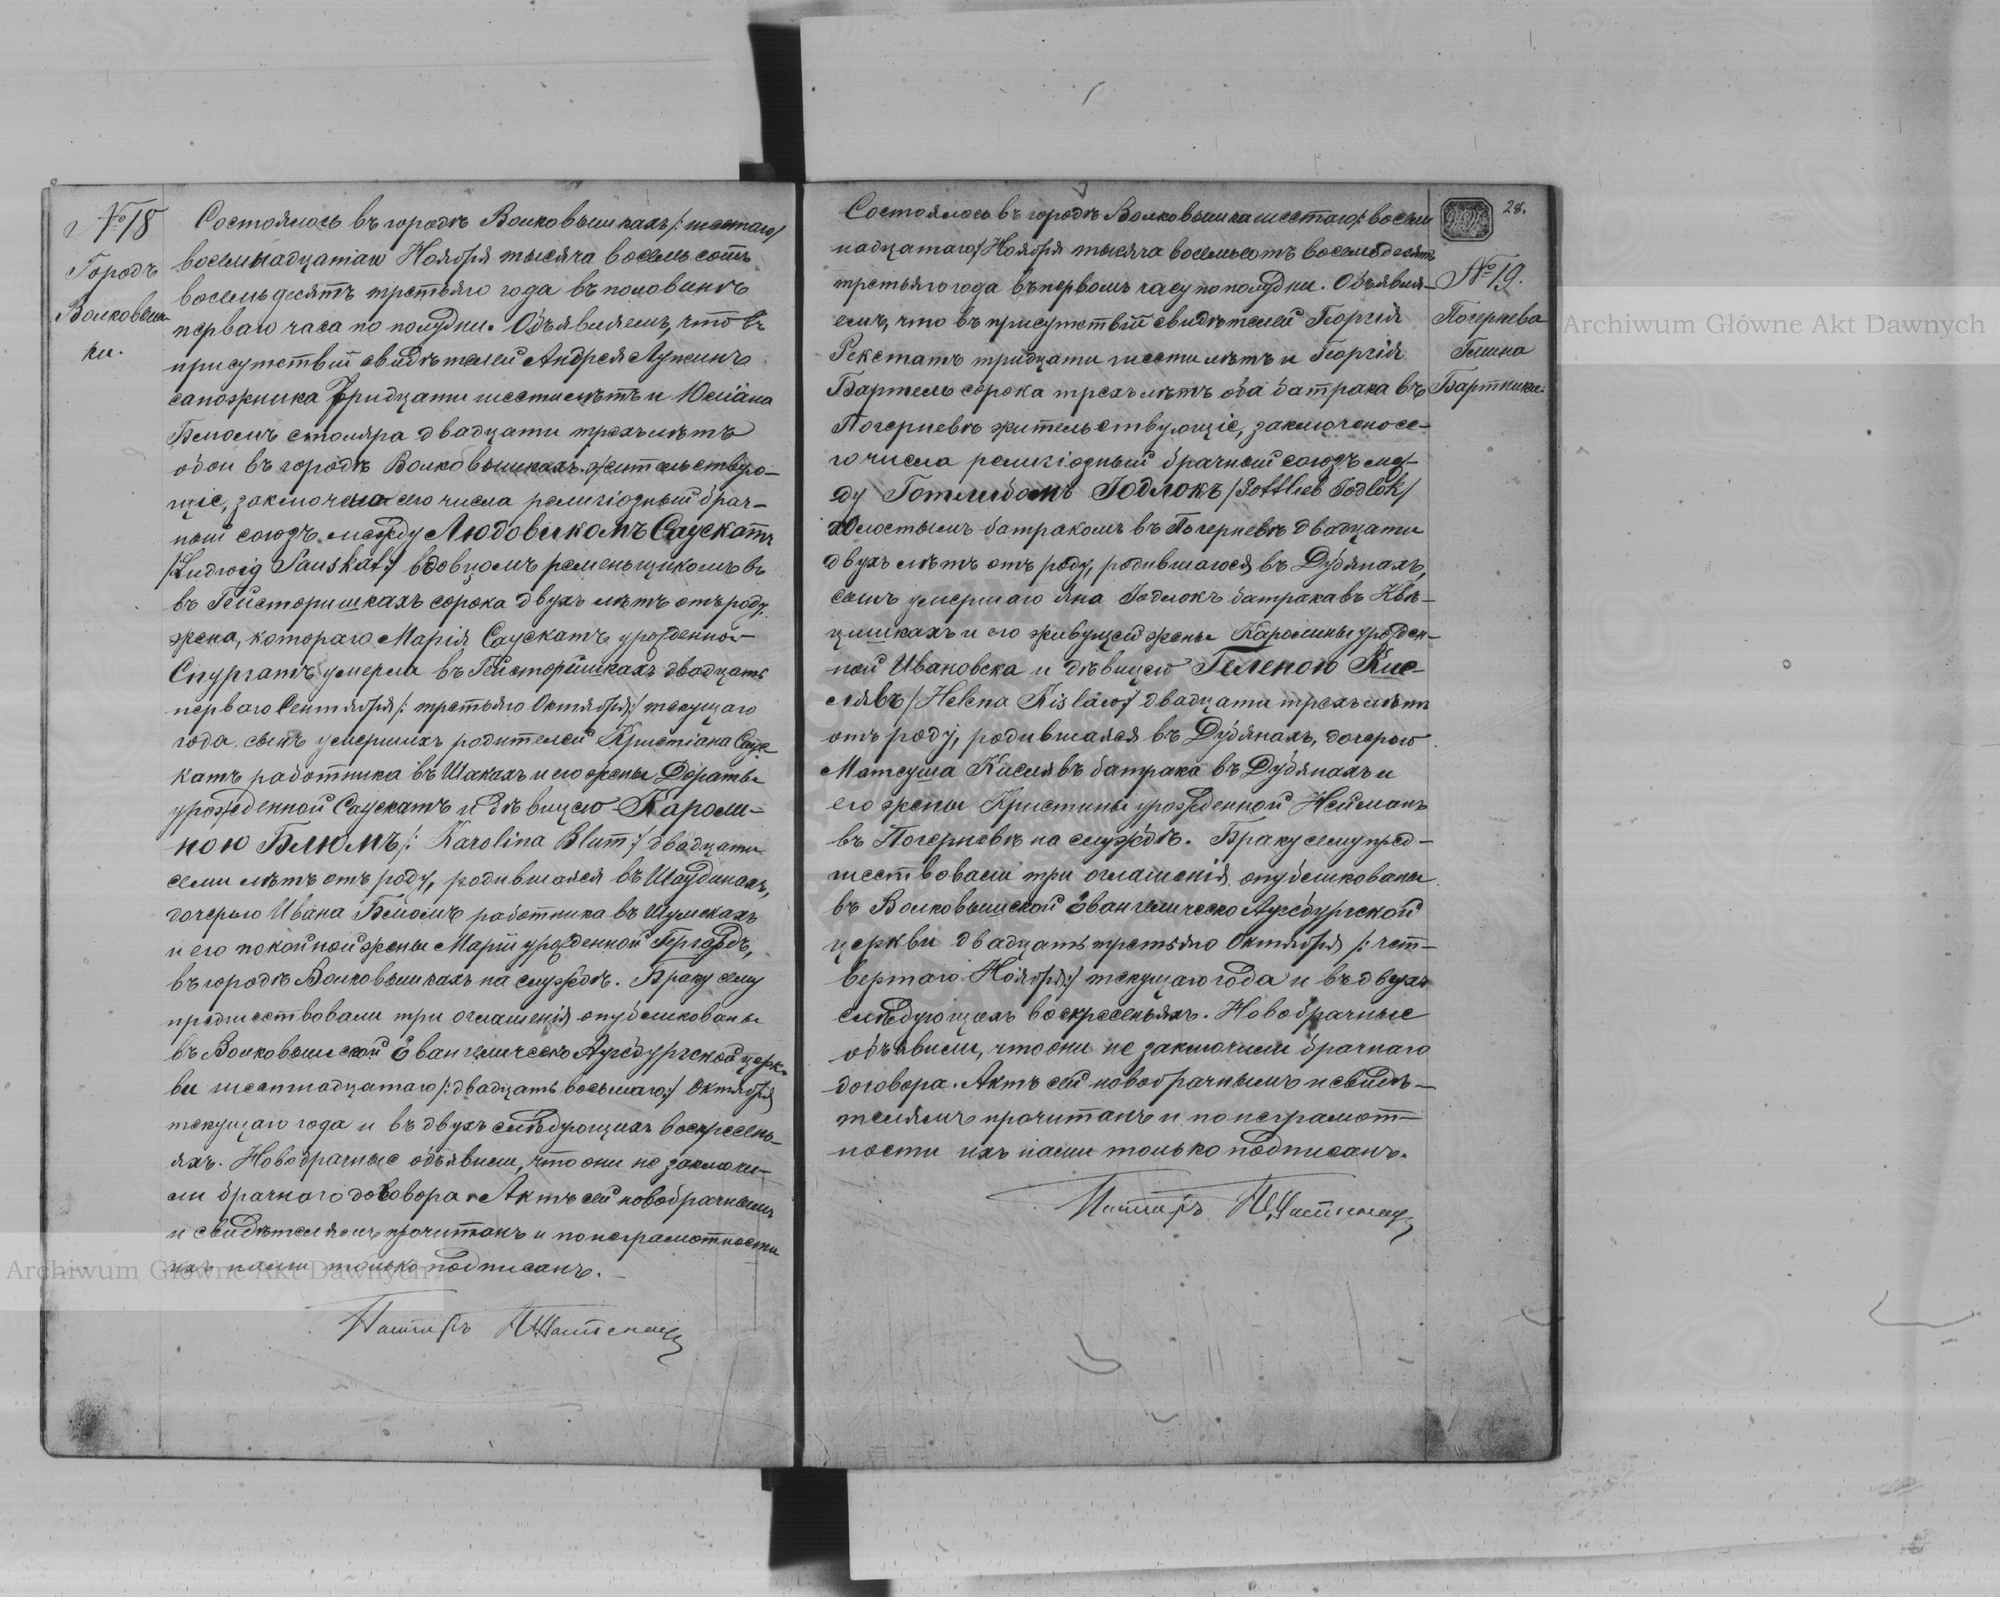 № 18
Городъ
Волковыш-
ки.
Состоялось въ городѣ Волковышкахъ /: шестаго/
восемнадцатаго Ноября тысяча восемьсотъ
восемьдесятъ третьяго года въ половинѣ
перваго часа по полудни. Объявляемъ, что въ
присутствіи свидѣтелей Андрея
сапожника тридцати шести лѣтъ и Юліана
Блюмъ столяра двадцати трехъ лѣтъ
обои въ городѣ Волковышкахъ жительствую-
щіе, заключенъ сего числа религіозный брач-
ный союзъ между Людовикомъ Саускатъ
/Ludwig Sauskat:/ вдовцомъ ременьщикомъ въ
въ Гейсторишкахъ сорока двухъ лѣтъ отъ роду,
жена, котораго Марія Саускатъ урожденной
Спургатъ умерла въ Гейсторишкахъ двадцать
перваго Сентября /: третьяго Октября:/ текущаго
года, сынъ умершихъ родителей Кристіана Саус
катъ работника въ Шакахъ и его жены Дораты
урожденной Саускатъ и дѣвицею Кароли-
ною Блюмъ /: Karolina Blum:/ двадцати
семи лѣтъ отъ роду, родившаяся въ Шаудинахъ,
дочерью Ивана Блюмъ работника въ Шумскахъ
и его покойной жены Маріи урожденной
въ городѣ Волковышкахъ на службѣ. Браку сему
предшествовали три оглашенія опубликованы
въ Волковышской Евангелическо Аугсбургской церк-
ви шестнадцатаго /: двадцать восьмаго:/ Октября
текущаго года и въ двухъ слѣдующихъ воскресень-
яхъ. Новобрачные объявили, что они не заключи-
ли брачнаго договора. Актъ сей новобрачнымъ
и свидѣтелямъ прочитанъ и по неграмотности
ихъ нами только подписанъ.
Пасторъ
28.
№ 19.
Погернева
Гмина
Бартники
Состоялось въ городѣ Волковышка шестаго /: восем
надцатаго:/ Ноября тысяча восемьсотъ восемьдесятъ
третьяго года въ первомъ часу по полудни. Объявля-
емъ, что въ присутствіи свидѣтелей Георгія
Рекстатъ тридцати шести лѣтъ и Георгія
Бартель сорока трехъ лѣтъ оба батрака въ
Погерневѣ жительствующіе, заключено се-
го числа религіозный брачный союзъ меж-
ду Готлибомъ Годлокъ /Gottlieb Godlok/
холостымъ батракомъ въ Погерневѣ двадцати
двухъ лѣтъ отъ роду, родившагося въ Дубянахъ,
сынъ умершаго Яна Годлокъ батрака въ Квѣ-
цишкахъ и его живущей жены Каролины урожден-
ной Ивановска и дѣвицею Геленою Кис-
лявъ /Helena Kisläw:/ двадцати трехъ лѣтъ
отъ роду, родившаяся въ Дубянахъ, дочерью
Матеуша Кислявъ батрака въ Дубянахъ и
его жены Кристины урожденной Нейманъ
въ Погерневѣ на службѣ. Браку сему пред-
шествовали три оглашенія опубликованы
въ Волковышской Евангелическо Аугсбургской
церкви двадцать третьяго Октября /: чет-
вертаго Ноября:/ текущаго года и въ двухъ
слѣдующихъ воскресеньяхъ. Новобрачные
объявили, что они не заключили брачнаго
договора. Актъ сей новобрачнымъ и свидѣ-
телямъ прочитанъ и по неграмот-
ности ихъ нами только подписанъ.
Пасторъ
Archiwum Główne Akt Dawnych
Archiwum Główne Akt Dawnych